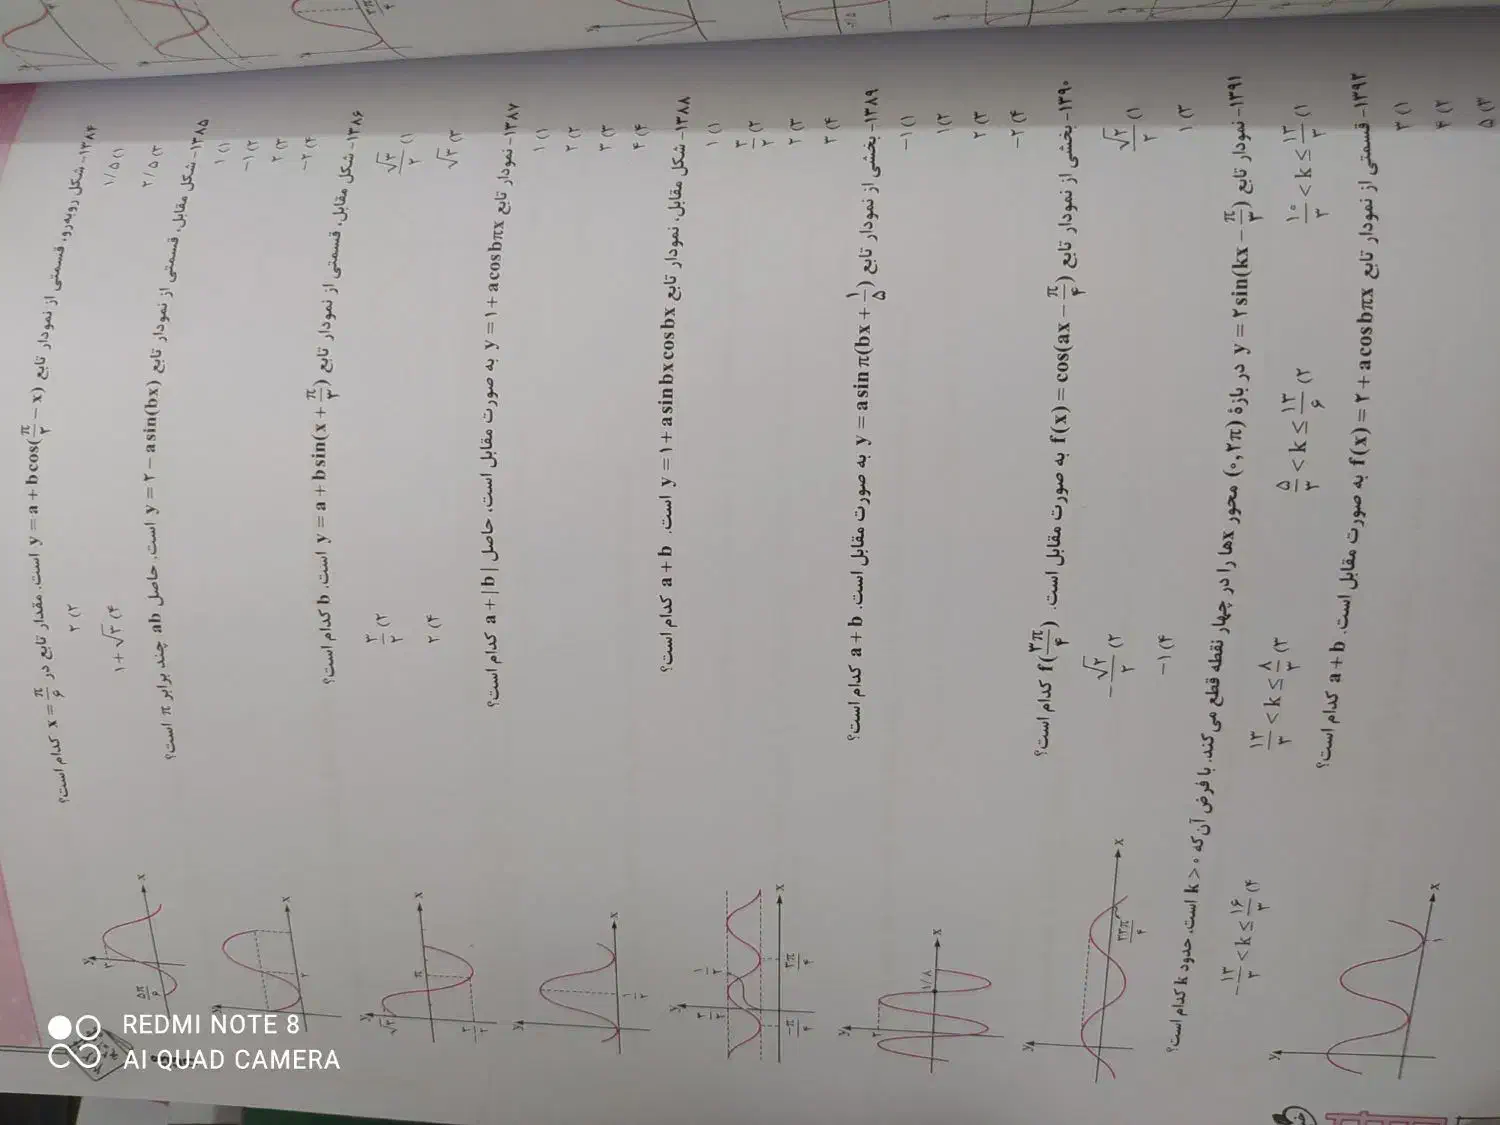 ۱۳۸۴- شکل روبه‌رو، قسمتی از نمودار تابع y = a + b cos(π/۲ − x) است. مقدار تابع در x = π/۶ کدام است؟
۱) ۱/۵
۲) ۲
۳) ۲/۵
۴) ۱+√۳
۱۳۸۵- شکل مقابل، قسمتی از نمودار تابع y = ۲ − a sin(bx) است. حاصل ab چند برابر π است؟
۱) ۱
۲) −۱
۳) ۲
۴) −۲
۱۳۸۶- شکل مقابل، قسمتی از نمودار تابع y = a + b sin(x + π/۳) است. b کدام است؟
۱) √۳/۲
۲) ۳/۲
۳) √۳
۴) ۲
۱۳۸۷- نمودار تابع y = ۱ + a cos bπx به صورت مقابل است، حاصل a + |b| کدام است؟
۱) ۱
۲) ۲
۳) ۳
۴) ۴
۱۳۸۸- شکل مقابل، نمودار تابع y = ۱ + a sin bx cos bx است. a + b کدام است؟
۱) ۱
۲) ۳/۲
۳) ۲
۴) ۳
۱۳۸۹- بخشی از نمودار تابع y = a sin π(bx + ۱/۵) به صورت مقابل است. a + b کدام است؟
۱) −۱
۲) ۱
۳) ۲
۴) −۲
۱۳۹۰- بخشی از نمودار تابع f(x) = cos(ax − π/۴) به صورت مقابل است. f(۳π/۴) کدام است؟
۱) √۲/۲
۲) −√۲/۲
۳) ۱
۴) −۱
۱۳۹۱- نمودار تابع y = ۲ sin(kx − π/۳) در بازهٔ (۰, ۲π) محور xها را در چهار نقطه قطع می‌کند. با فرض آن‌که k > ۰ است، حدود k کدام است؟
۱) ۱۰/۳ < k ≤ ۱۳/۳
۲) ۵/۳ < k ≤ ۱۳/۶
۳) ۱۳/۳ < k ≤ ۸/۳
۴) −۱۳/۳ < k ≤ ۱۶/۳
۱۳۹۲- قسمتی از نمودار تابع f(x) = ۲ + a cos bπx به صورت مقابل است. a + b کدام است؟
۱) ۳
۲) ۴
۳) ۵
REDMI NOTE 8
AI QUAD CAMERA